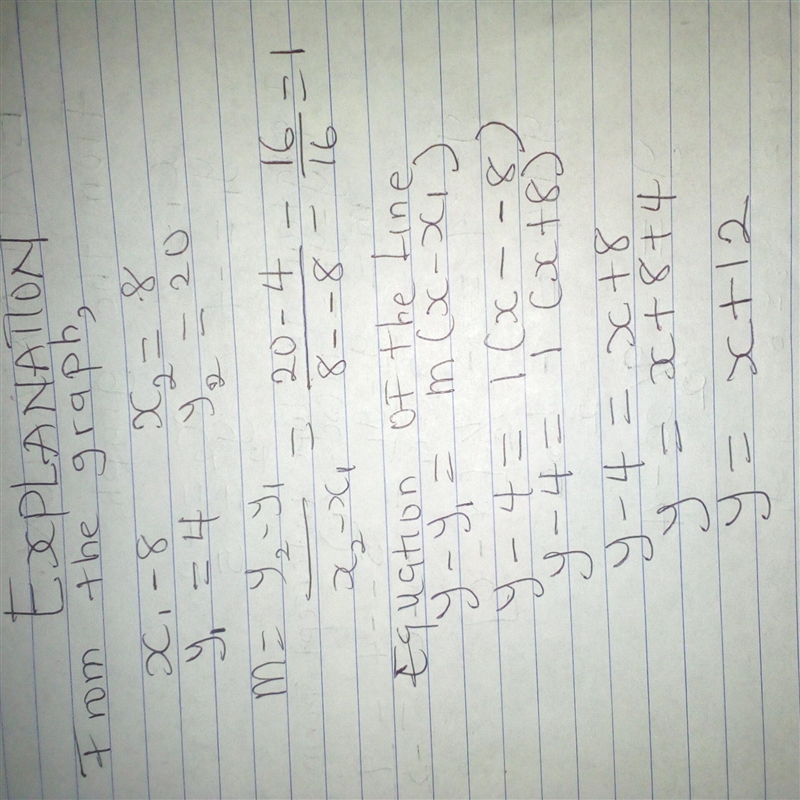 EXPLANATION
From the graph,
x₁ - 8 x₂ = 8
y₁ = 4 y₂ = 20
m = y₂-y₁ / x₂-x₁ = 20 - 4 / 8 - - 8 = 16 / 16 = 1
Equation of the line
y - y₁ = m(x - x₁)
y - 4 = 1(x - - 8)
y - 4 = 1(x + 8)
y - 4 = x + 8
y = x + 8 + 4
y = x + 12